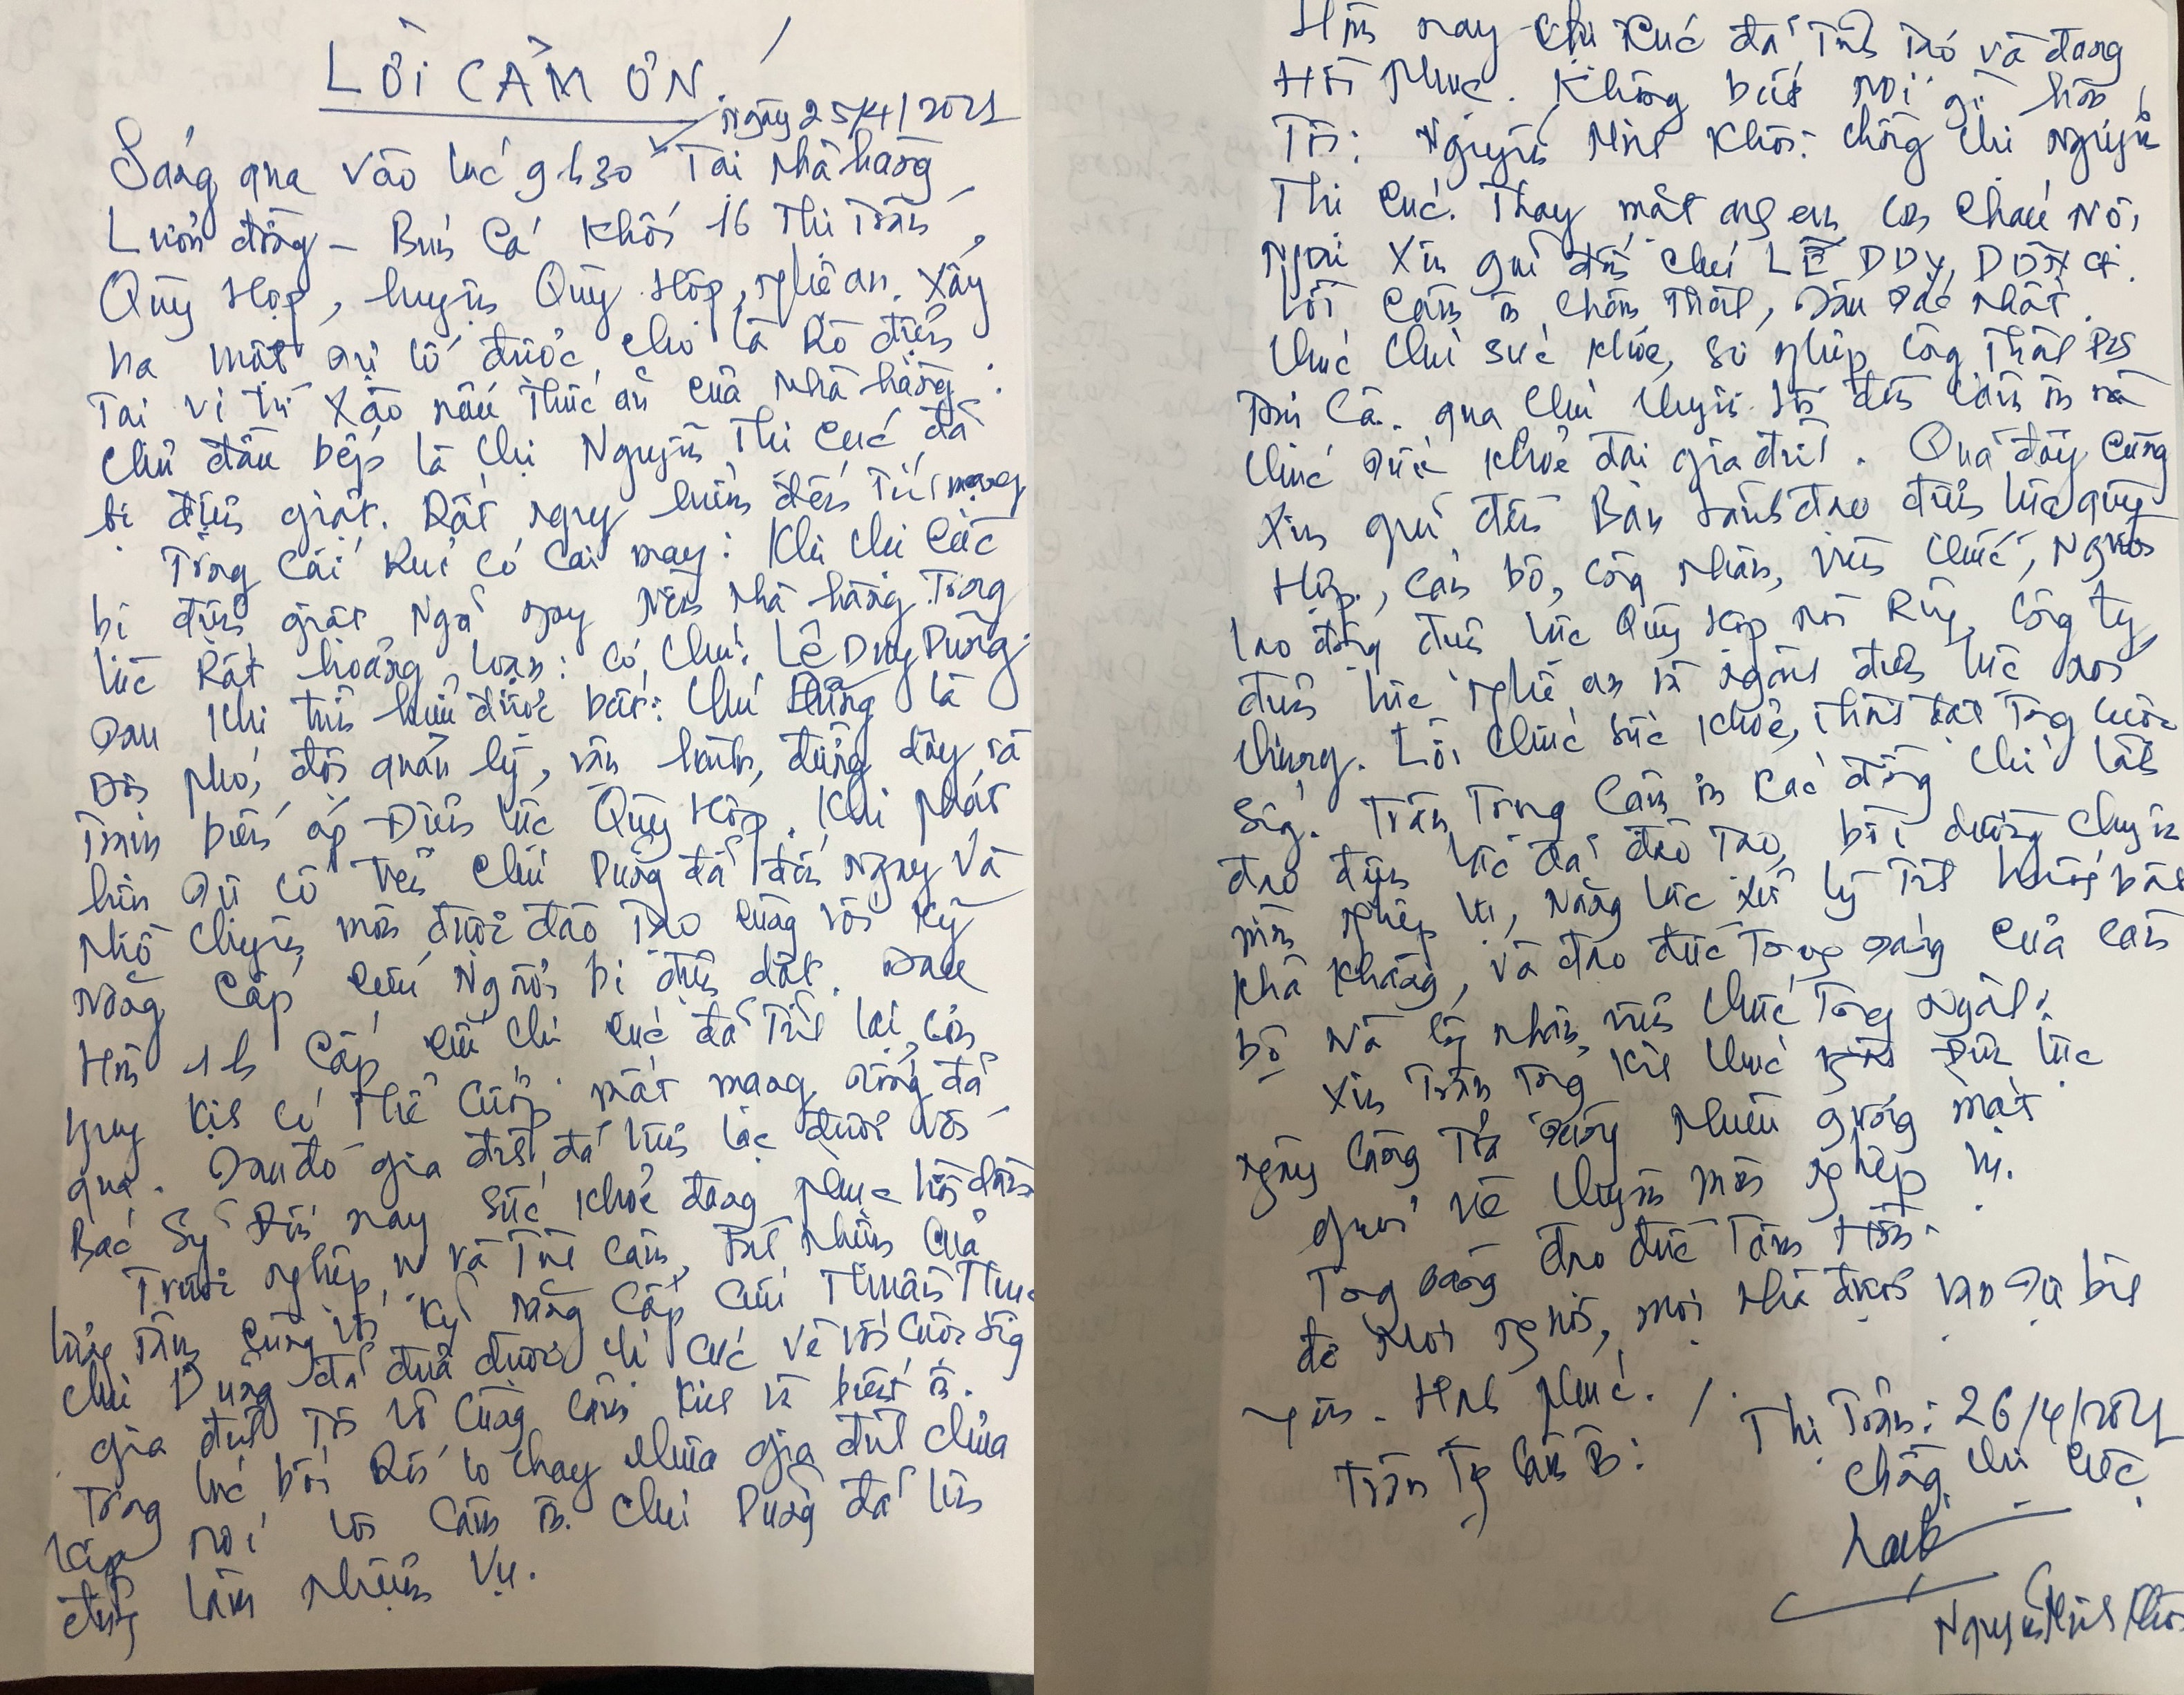 LỜI CẢM ƠN.
Ngày 25/4/2021
Sáng qua vào lúc 9h30 Tại nhà hàng
Lươn đồng - Bún Cá Khối 16 Thị Trấn
Quỳ Hợp, huyện Quỳ Hợp, nghệ an. Xảy
ra một sự cố được cho là Rò điện
Tại vị trí Xào nấu thức ăn của nhà hàng.
Chủ đầu bếp là chị Nguyễn Thị Cúc đã
bị điện giật. Rất nguy hiểm đến Tính mạng
Trong Cái Rủi có Cái may: Khi chị Cúc
bị điện giật Ngã ngay Nền nhà hàng. Trong
lúc Rất hoảng loạn: Có Chú: Lê Duy Dũng.
Sau Khi tìm hiểu được biết: Chú Dũng là
Đội phó, đội quản lý, vận hành, đường dây và
Trạm biến áp Điện lực Quỳ Hợp. Khi phát
hiện Sự Cố Trên Chú Dũng đã đến ngay và
Nhờ Chuyên môn được đào Tạo cùng với Kỹ
Năng Cấp Cứu Người bị điện dật. Sau
Hơn 1h Cấp Cứu Chị Cúc đã Tỉnh lại, Cơn
nguy Kịch có thể Cướp mất mạng Sống đã
qua. Sau đó gia đình đã liên lạc được với
Bác Sỹ Đến nay Sức Khỏe đang phục hồi dần
Trước nghiệp vụ và Tình Cảm, Tinh Thần Của
lương Tâm Cùng với Kỹ năng Cấp Cứu Thuần Thục
Chú Dũng đã đưa được chị Cúc về với Cuộc Sống
gia đình Tôi Vô Cùng Cảm Kích và biết ơn.
Trong lúc bối Rối lo chạy chữa gia đình chưa
Kịp nói lời Cảm ơn. Chú Dũng đã lên
đường làm nhiệm vụ.
Hôm nay Chị Cúc đã Tỉnh Táo và đang
Hồi Phục. Không biết nói gì hơn
Tôi: Nguyễn Minh Khôi: chồng chị Nguyễn
Thị Cúc. Thay mặt anh em Con Cháu Nội
Ngoại Xin gửi đến Chú LÊ DUY DŨNG
Lời Cảm ơn Chân Thành, Sâu Sắc Nhất.
Chúc Chú Sức Khỏe, Sự nghiệp Công Thành
qua Chú Chuyển lời đến Cảm ơn và
Chúc Sức Khỏe đại gia đình. Qua đây Cũng
Xin gửi đến Ban Lãnh đạo điện lực quỳ
Hợp, Cán bộ, Công Nhân, Viên Chức, Người
lao động điện lực Quỳ Hợp nói Riêng, Công Ty
điện lực nghệ an và ngành điện lực nói
Chung. Lời Chúc Sức Khỏe, Thành đạt Trong Cuộc
Sống. Trân Trọng Cảm ơn Các đồng Chí Lãnh
đạo điện lực đã đào Tạo, bồi dưỡng Chuyên
môn nghiệp vụ, Năng lực Xử lý Tình huống bất
Khả Kháng, và đạo đức Trong Sáng Của Cán
bộ và Công nhân, viên Chức Trong Ngành.
Xin Trân Trọng Kính Chúc ngành Điện lực
ngày Càng Tỏa Sáng Nhiều gương mặt
giỏi Về Chuyên môn nghiệp vụ.
Trong Sáng đạo đức Tâm Hồn.
để Mọi người, mọi Nhà được vạn Sự bình
Yên - Hạnh Phúc./.
Trân Trọng Cảm Ơn:
Thị Trấn: 26/4/2021
Chồng Chị Cúc
Nguyễn Minh Khôi